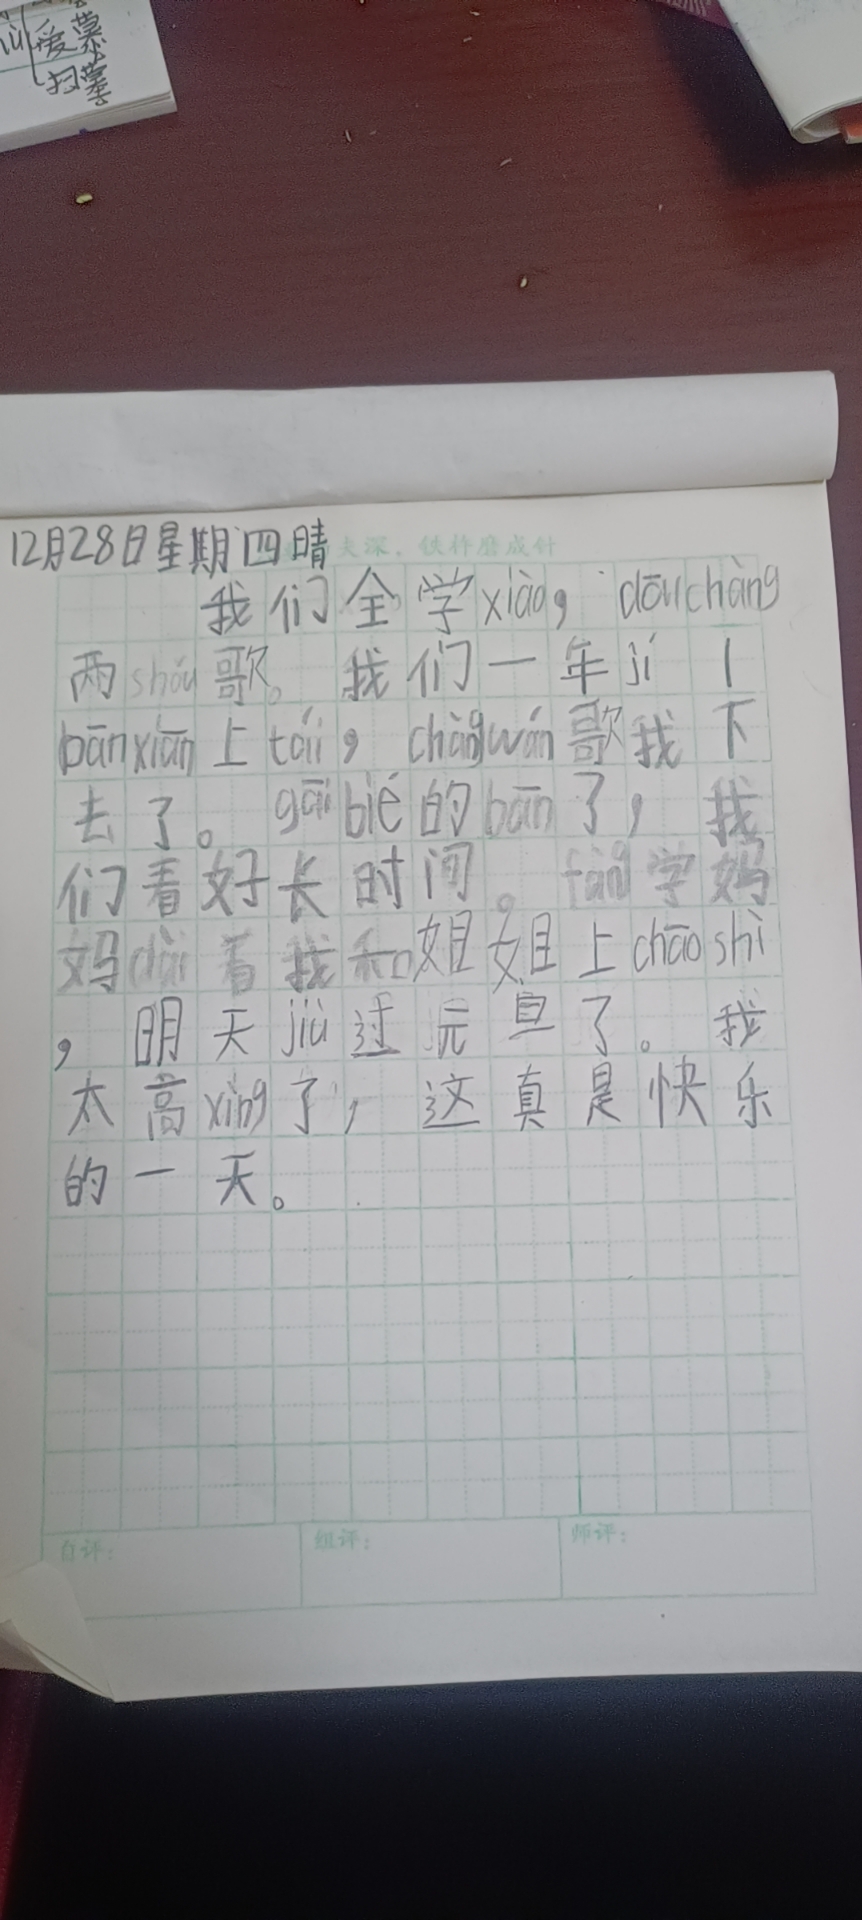 爱慕
扫墓
12月28日星期四晴
夫深,铁杵磨成针
我们全学xiào,dōuchàng
两shóu歌。我们一年jí1
bānxiān上tái,chàngwán歌我下
去了。gāibié的bān了,我
们看好长时间。fàng学妈
妈dài着我和姐姐上chāoshì
,明天jiù过元旦了。我
太高xìng了,这真是快乐
的一天。
自评: 组评: 师评: